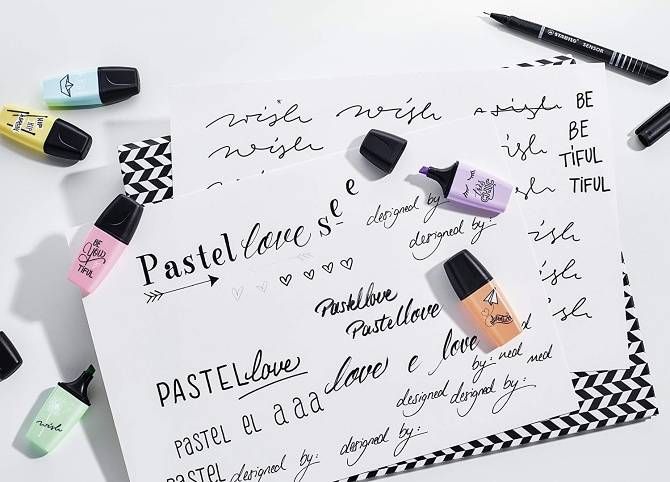 STABILO SENSOR
wish wish wish BE
wish BE
TiFUL
wish TiFUL
HIP HIP HURRAY
BE YOU TIFUL
Pastel love s e e
designed by:
designed by:
wish
wish
wish
Pastellove
Pastellove
PASTEL love love e love
by: ned ned
designed designed by:
PASTEL el a a a
designed by:
PASTEL designed by:
wish